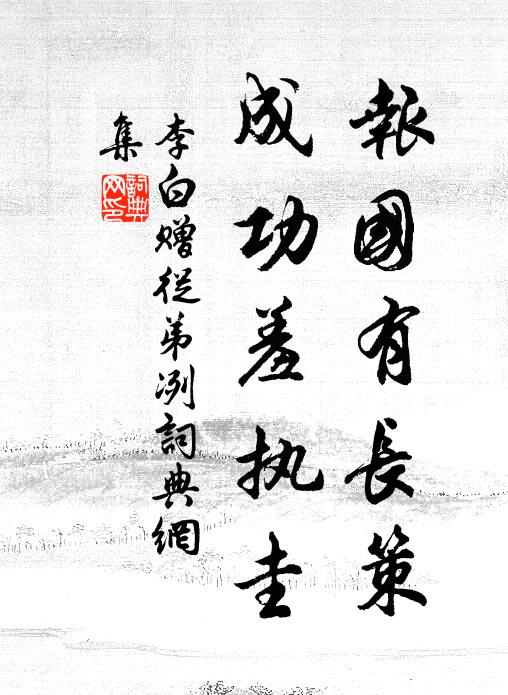 報國有長策
成功羞执圭
李白赠從弟冽詞典網
集
詞典
网印